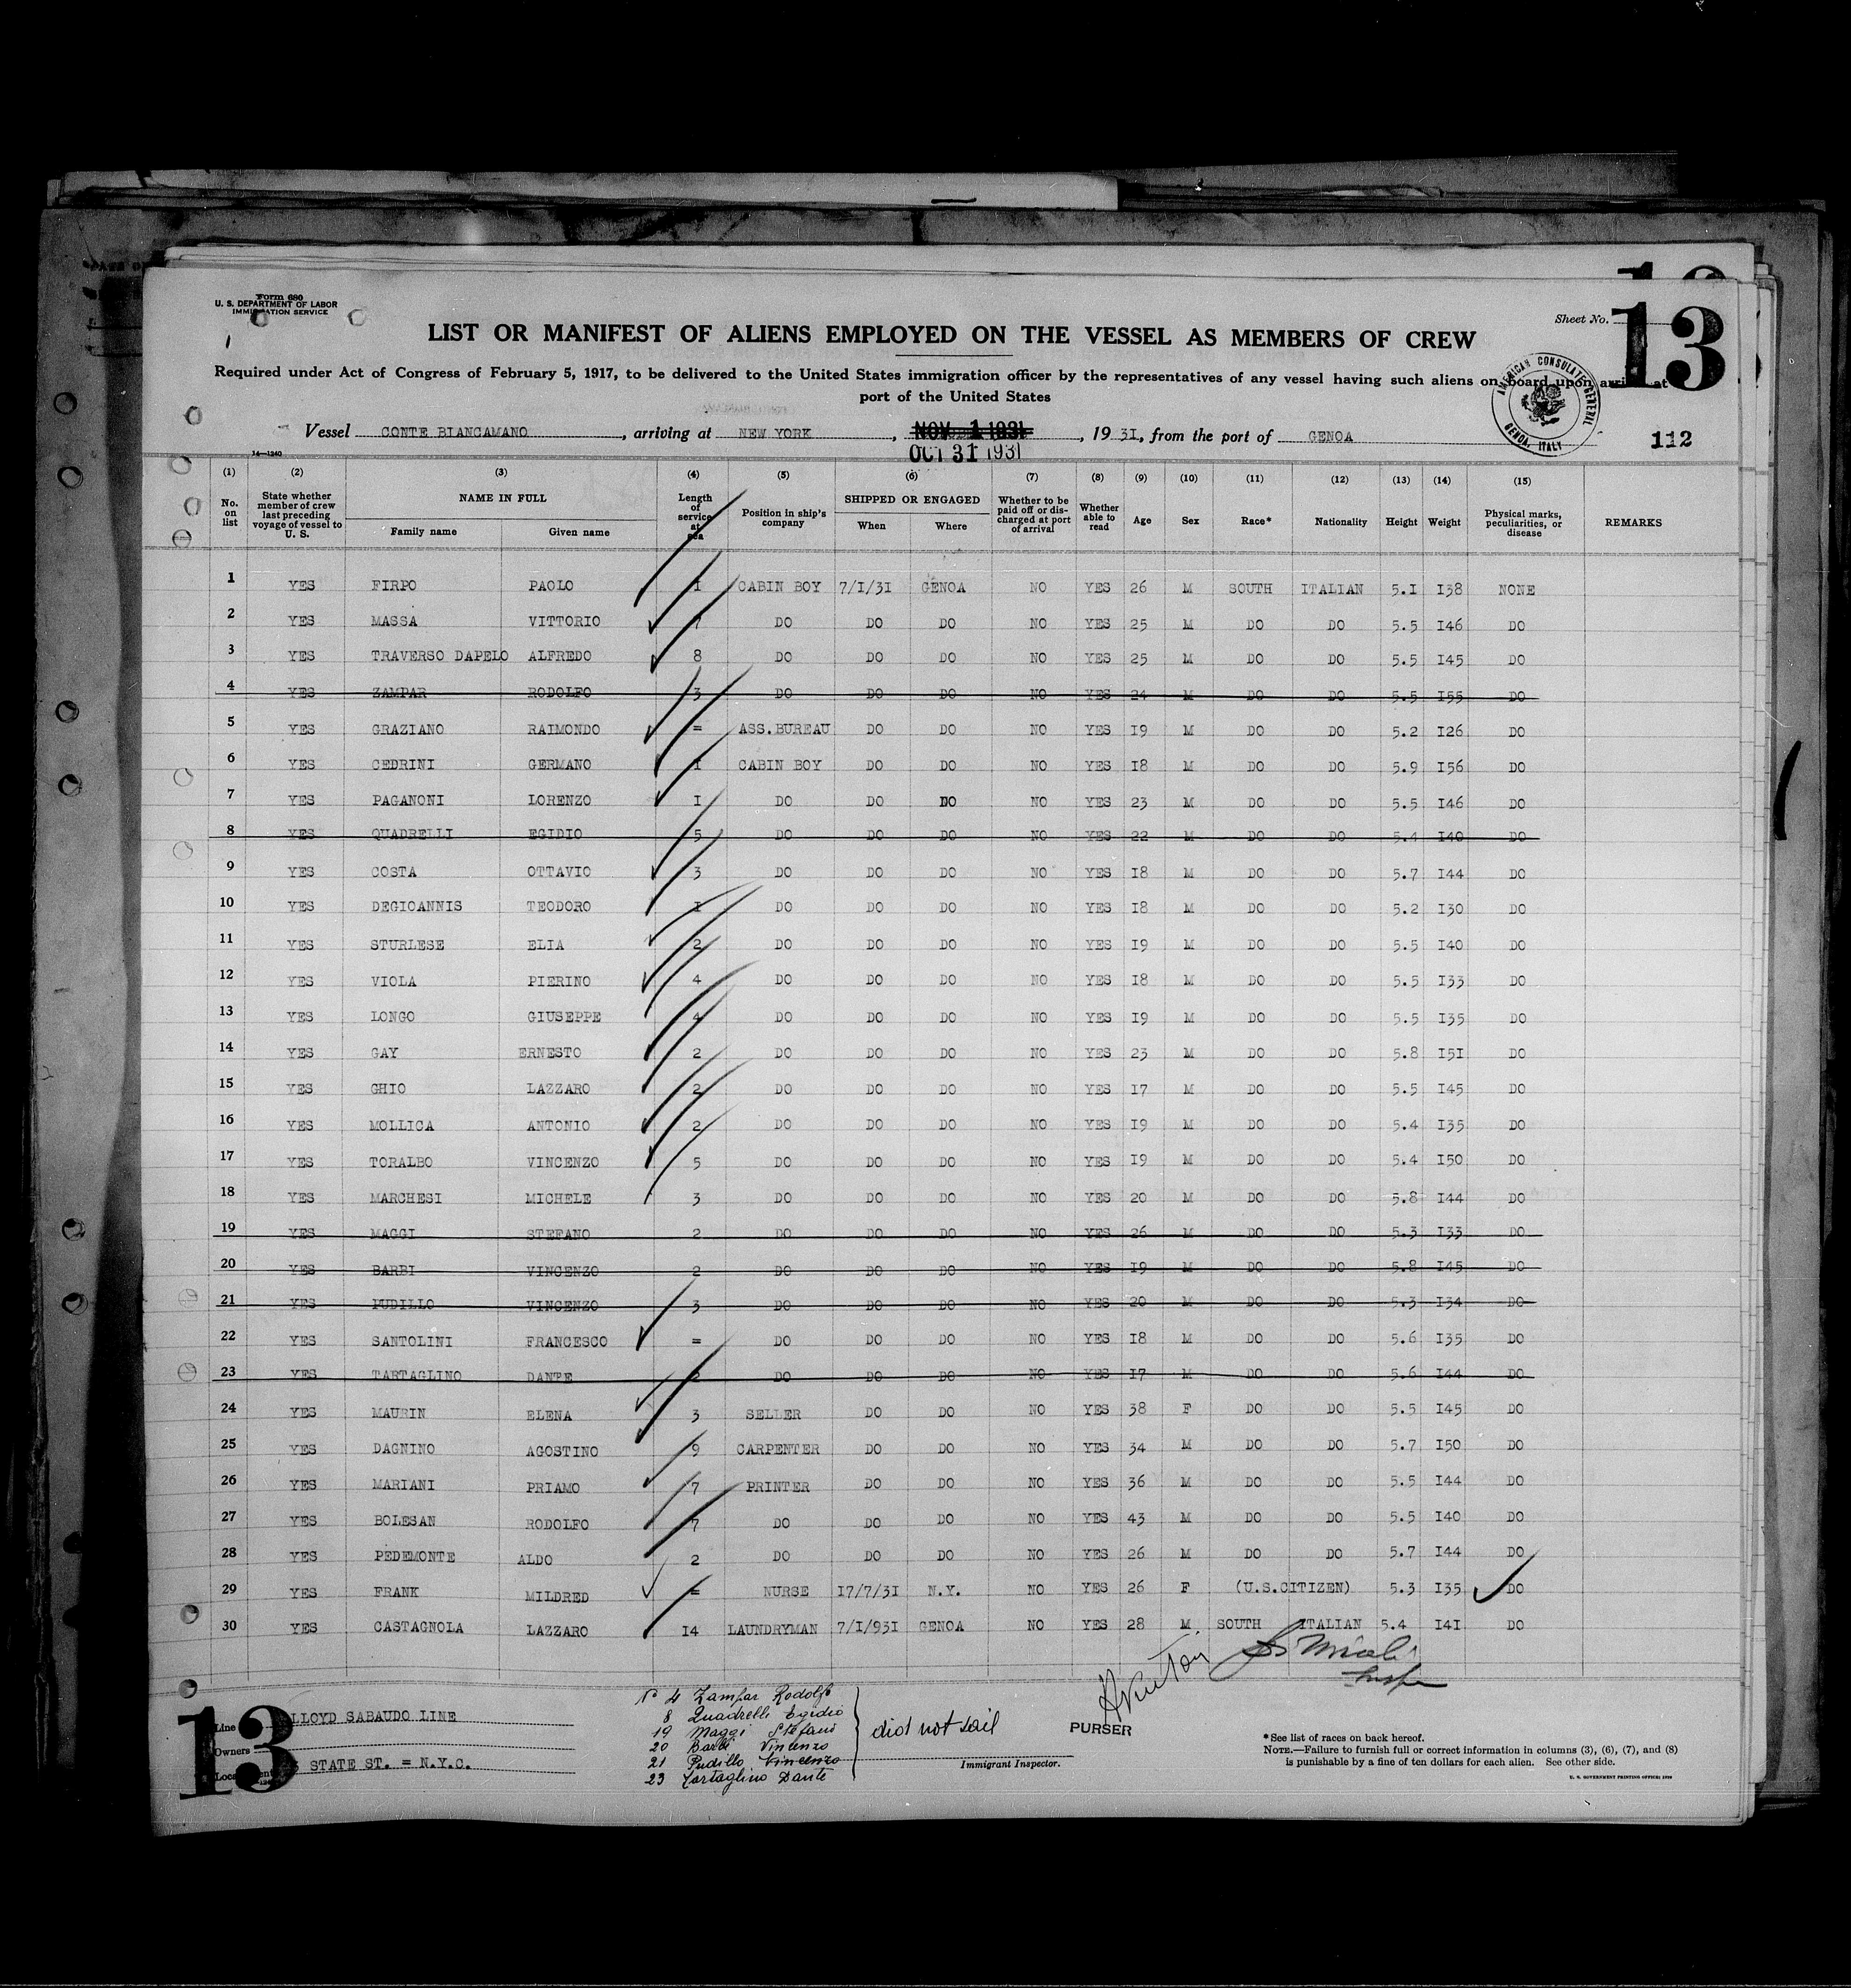 Form 680
U. S. DEPARTMENT OF LABOR
IMMIGRATION SERVICE
Sheet No. 13
LIST OR MANIFEST OF ALIENS EMPLOYED ON THE VESSEL AS MEMBERS OF CREW
Required under Act of Congress of February 5, 1917, to be delivered to the United States immigration officer by the representatives of any vessel having such aliens on board upon arrival at
port of the United States
AMERICAN CONSULATE GENERAL GENOA, ITALY
Vessel CONTE BIANCAMANO, arriving at NEW YORK, NOV 1 1931, 1931, from the port of GENOA 112
OCT 31 1931
14—1240
(1) (2) (3) (4) (5) (6) (7) (8) (9) (10) (11) (12) (13) (14) (15)
No. on list | State whether member of crew last preceding voyage of vessel to U. S. | NAME IN FULL Family name Given name | Length of service at sea | Position in ship's company | SHIPPED OR ENGAGED When Where | Whether to be paid off or discharged at port of arrival | Whether able to read | Age | Sex | Race* | Nationality | Height | Weight | Physical marks, peculiarities, or disease | REMARKS
1 YES FIRPO PAOLO 1 CABIN BOY 7/1/31 GENOA NO YES 26 M SOUTH ITALIAN 5.1 138 NONE
2 YES MASSA VITTORIO 7 DO DO DO NO YES 25 M DO DO 5.5 146 DO
3 YES TRAVERSO DAPELO ALFREDO 8 DO DO DO NO YES 25 M DO DO 5.5 145 DO
4 YES ZAMPAR RODOLFO 3 DO DO DO NO YES 24 M DO DO 5.5 155 DO
5 YES GRAZIANO RAIMONDO = ASS.BUREAU DO DO NO YES 19 M DO DO 5.2 126 DO
6 YES CEDRINI GERMANO 1 CABIN BOY DO DO NO YES 18 M DO DO 5.9 156 DO
7 YES PAGANONI LORENZO 1 DO DO DO NO YES 23 M DO DO 5.5 146 DO
8 YES QUADRELLI EGIDIO 5 DO DO DO NO YES 22 M DO DO 5.4 140 DO
9 YES COSTA OTTAVIO 3 DO DO DO NO YES 18 M DO DO 5.7 144 DO
10 YES DEGIOANNIS TEODORO 1 DO DO DO NO YES 18 M DO DO 5.2 130 DO
11 YES STURLESE ELIA 2 DO DO DO NO YES 19 M DO DO 5.5 140 DO
12 YES VIOLA PIERINO 4 DO DO DO NO YES 18 M DO DO 5.5 133 DO
13 YES LONGO GIUSEPPE 4 DO DO DO NO YES 19 M DO DO 5.5 135 DO
14 YES GAY ERNESTO 2 DO DO DO NO YES 23 M DO DO 5.8 151 DO
15 YES GHIO LAZZARO 2 DO DO DO NO YES 17 M DO DO 5.5 145 DO
16 YES MOLLICA ANTONIO 2 DO DO DO NO YES 19 M DO DO 5.4 135 DO
17 YES TORALBO VINCENZO 5 DO DO DO NO YES 19 M DO DO 5.4 150 DO
18 YES MARCHESI MICHELE 3 DO DO DO NO YES 20 M DO DO 5.8 144 DO
19 YES MAGGI STEFANO 2 DO DO DO NO YES 26 M DO DO 5.3 133 DO
20 YES BARBI VINCENZO 2 DO DO DO NO YES 19 M DO DO 5.8 145 DO
21 YES PUDILLO VINCENZO 3 DO DO DO NO YES 20 M DO DO 5.3 134 DO
22 YES SANTOLINI FRANCESCO = DO DO DO NO YES 18 M DO DO 5.6 135 DO
23 YES TARTAGLINO DANTE 2 DO DO DO NO YES 17 M DO DO 5.6 144 DO
24 YES MAURIN ELENA 3 SELLER DO DO NO YES 38 F DO DO 5.5 145 DO
25 YES DAGNINO AGOSTINO 9 CARPENTER DO DO NO YES 34 M DO DO 5.7 150 DO
26 YES MARIANI PRIAMO 7 PRINTER DO DO NO YES 36 M DO DO 5.5 144 DO
27 YES BOLESAN RODOLFO 7 DO DO DO NO YES 43 M DO DO 5.5 140 DO
28 YES PEDEMONTE ALDO 2 DO DO DO NO YES 26 M DO DO 5.7 144 DO
29 YES FRANK MILDRED = NURSE 17/7/31 N.Y. NO YES 26 F (U.S.CITIZEN) 5.3 135 DO
30 YES CASTAGNOLA LAZZARO 14 LAUNDRYMAN 7/1/931 GENOA NO YES 28 M SOUTH ITALIAN 5.4 141 DO
13
Line LLOYD SABAUDO LINE
Owners
STATE ST. = N.Y.C.
N° 4 Zampar Rodolfo
8 Quadrelli Egidio
19 Maggi Stefano
20 Barbi Vincenzo
21 Pudillo Vincenzo
23 Tartaglino Dante
did not sail
PURSER
Immigrant Inspector.
*See list of races on back hereof.
NOTE.—Failure to furnish full or correct information in columns (3), (6), (7), and (8)
is punishable by a fine of ten dollars for each alien. See other side.